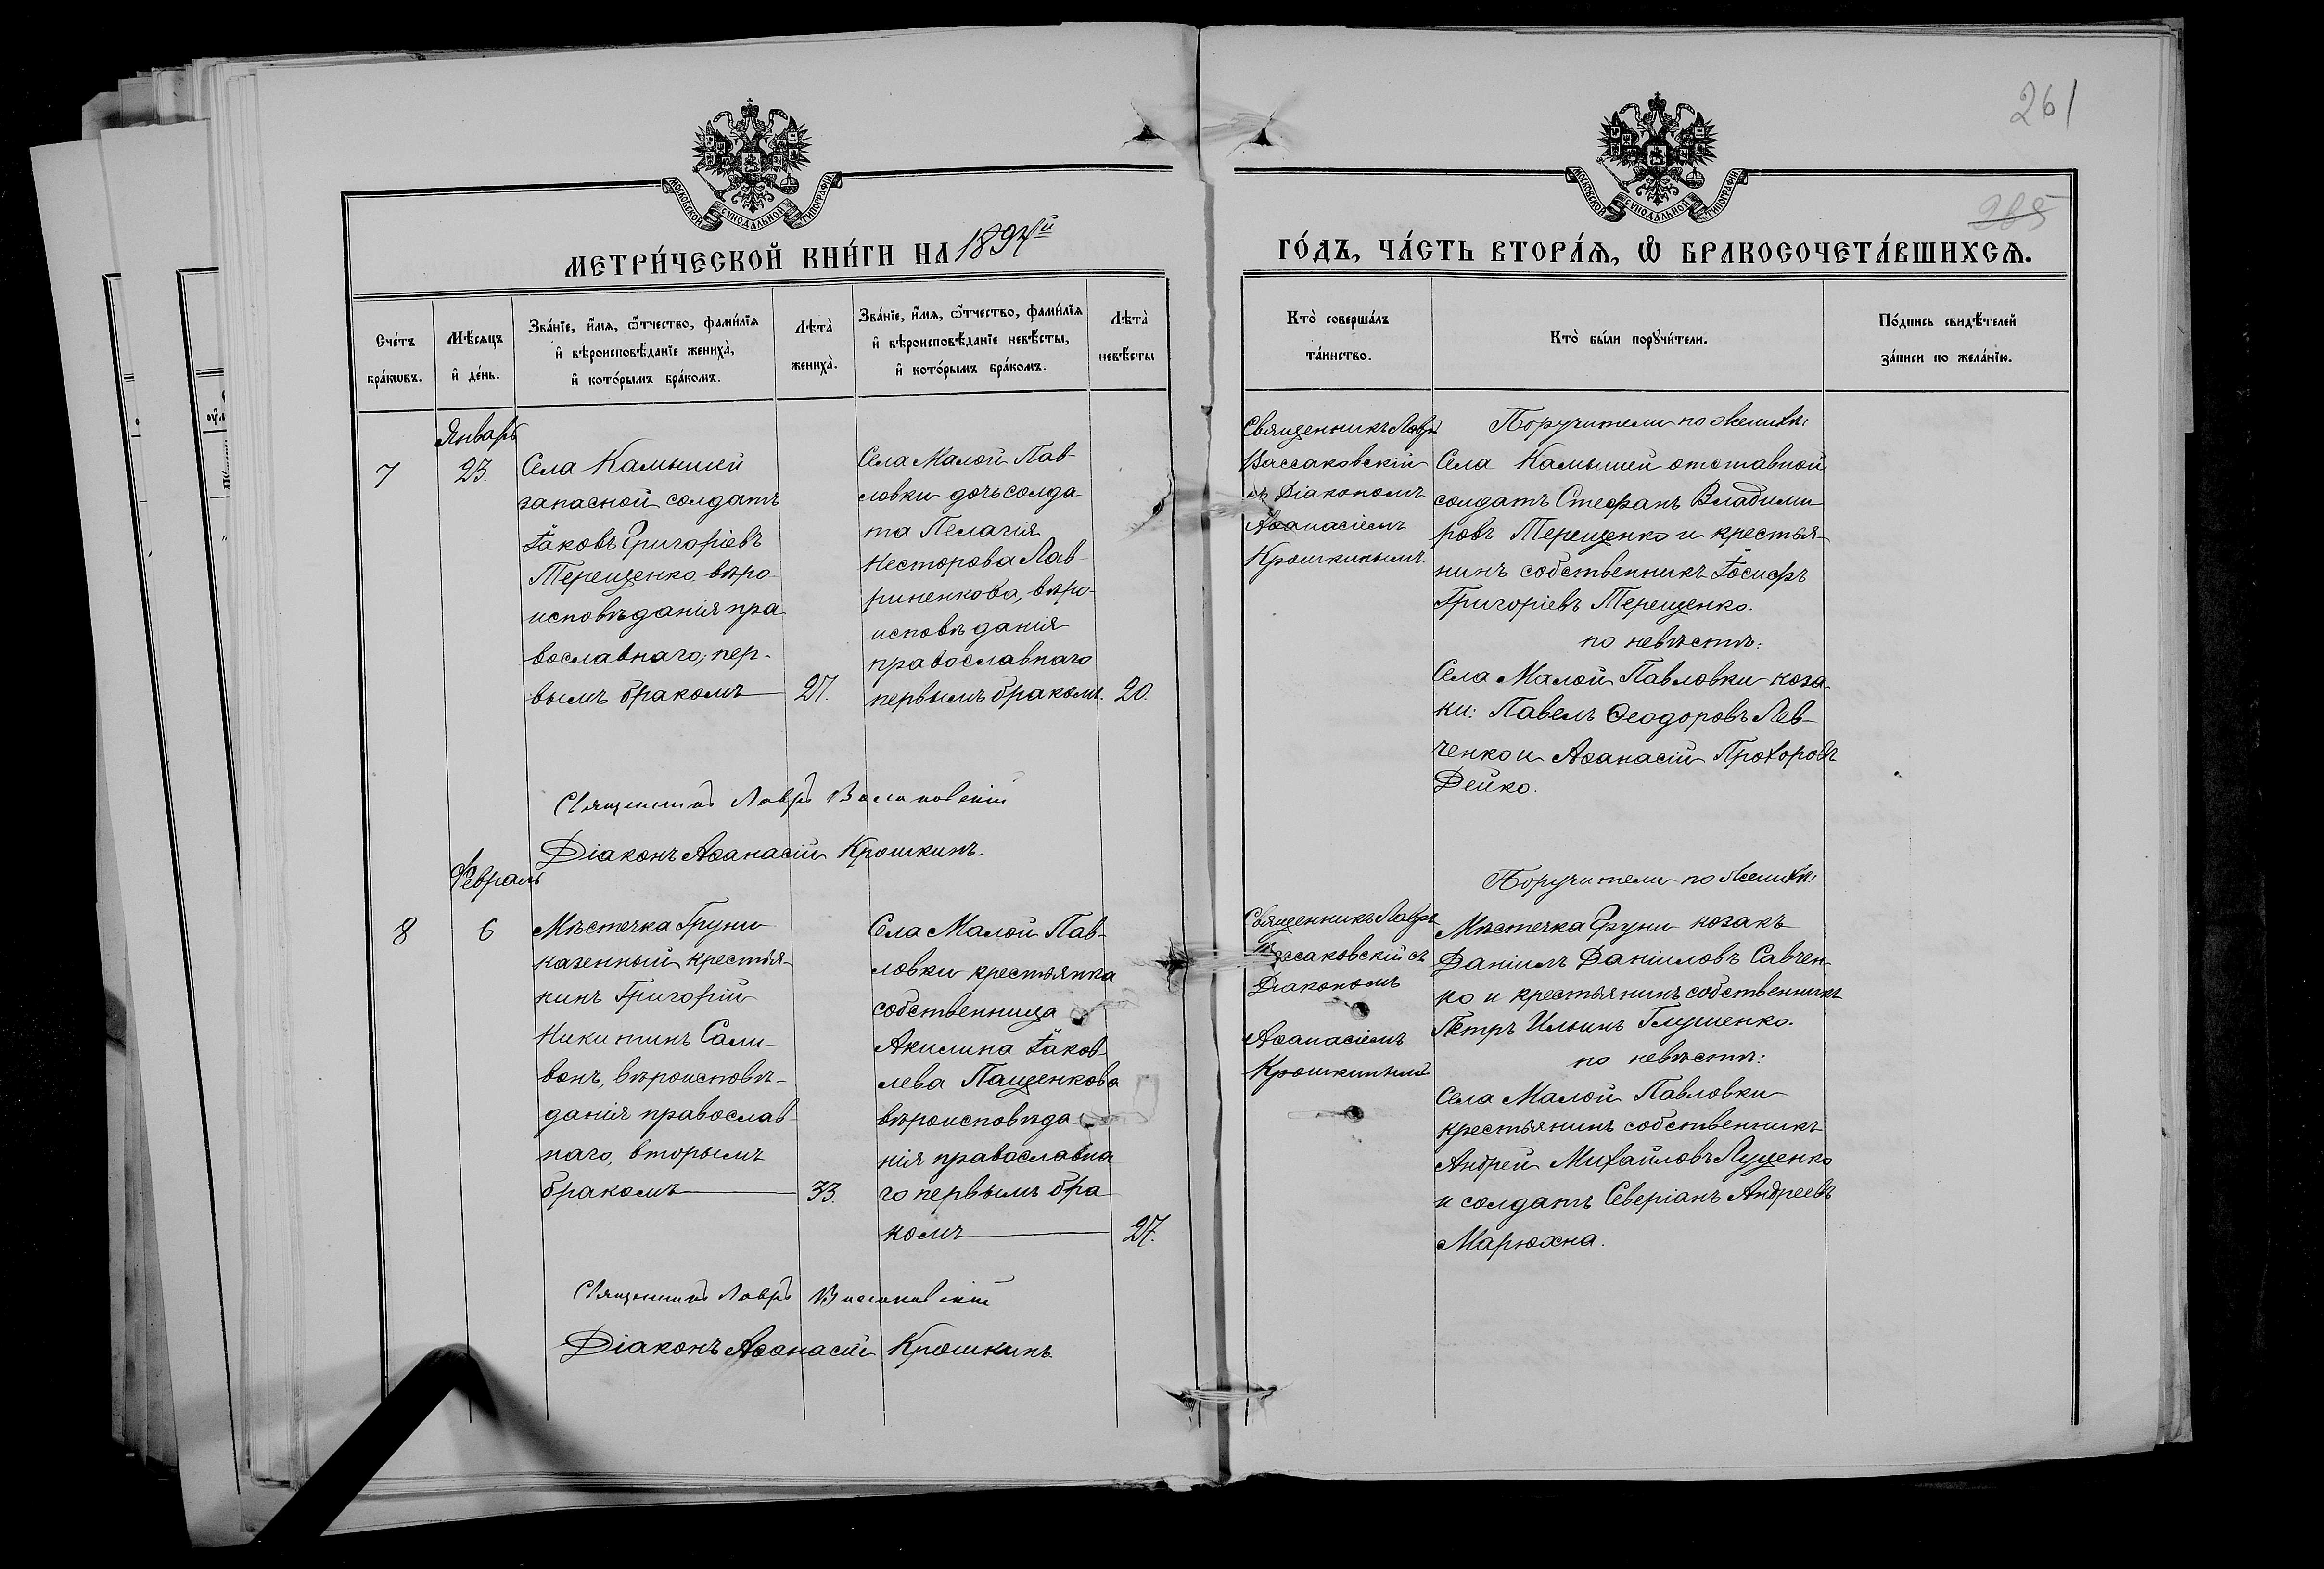 261
265
МОСКОВСКОЙ СѴНОДАЛЬНОЙ ТИПОГРАФІИ
МОСКОВСКОЙ СѴНОДАЛЬНОЙ ТИПОГРАФІИ
МЕТРИ́ЧЕСКОЙ КНИ́ГИ НА 1894й
ГО́ДЪ, ЧА́СТЬ ВТОРА́Я, Ѡ҆ БРАКОСОЧЕТА́ВШИХСЯ.
Сче́тъ бра́кѡвъ.
Мѣ́сяцъ и҆ де́нь.
Зва́нїе, и҆́мя, ѻ҆́тчество, фами́лїя
и҆ вѣроисповѣ́данїе жениха̀,
и҆ кото́рымъ бра́комъ.
Лѣта̀ жениха̀.
Зва́нїе, и҆́мя, ѻ҆́тчество, фами́лїя
и҆ вѣроисповѣ́данїе невѣ́сты,
и҆ кото́рымъ бра́комъ.
Лѣта̀ невѣ́сты
Кто̀ соверша́лъ
та́инство.
Кто̀ бы́ли порꙋчи́тели.
По́дпись свидѣ́телей
за́писи по жела́нїю.
Январь
7
23.
Села Камышей
запасной солдатъ
Іаковъ Григоріевъ
Терещенко вѣро-
исповѣданія пра
вославнаго; пер-
вымъ бракомъ
27.
Села Малой Пав-
ловки дочь солда-
та Пелагія
Несторова Лав-
риненкова, вѣро-
исповѣданія
православнаго
первымъ бракомъ.
20.
Священникъ Лавръ
Вассаковскій
съ Діакономъ
Аѳанасіемъ
Крошкинымъ.
Поручители по женихѣ:
Села Камышей отставной
солдатъ Стефанъ Владими
ровъ Терещенко и крестья-
нинъ собственникъ Іосифъ
Григоріевъ Терещенко.
по невѣстѣ:
Села Малой Павловки коза-
ки: Павелъ Ѳеодоровъ Лев-
ченко и Аѳанасій Прохоровъ
Дейко.
Священникъ Лавръ Вассаковскій
Діаконъ Аѳанасій Крошкинъ.
Февраль
8
6
Мѣстечка Груни
казенный крестья-
нинъ Григорій
Никитинъ Сали-
вонъ, вѣроисповѣ-
данія православ-
наго, вторымъ
бракомъ
33.
Села Малой Пав-
ловки крестьянка
собственница
Акилина Іаков-
лева Пащенкова
вѣроисповѣда-
нія православна
го первымъ бра
комъ
27.
Священникъ Лавръ
Вассаковскій съ
Діакономъ
Аѳанасіемъ
Крошкинымъ
Поручители по женихѣ:
Мѣстечка Груни козакъ
Даніилъ Даніиловъ Савчен-
ко и крестьянинъ собственникъ
Петръ Ильинъ Глушенко.
по невѣстѣ:
Села Малой Павловки
крестьянинъ собственникъ
Андрей Михайловъ Луценко
и солдатъ Северіанъ Андреевъ
Марюхна.
Священникъ Лавръ Вассаковскій
Діаконъ Аѳанасій Крошкинъ.